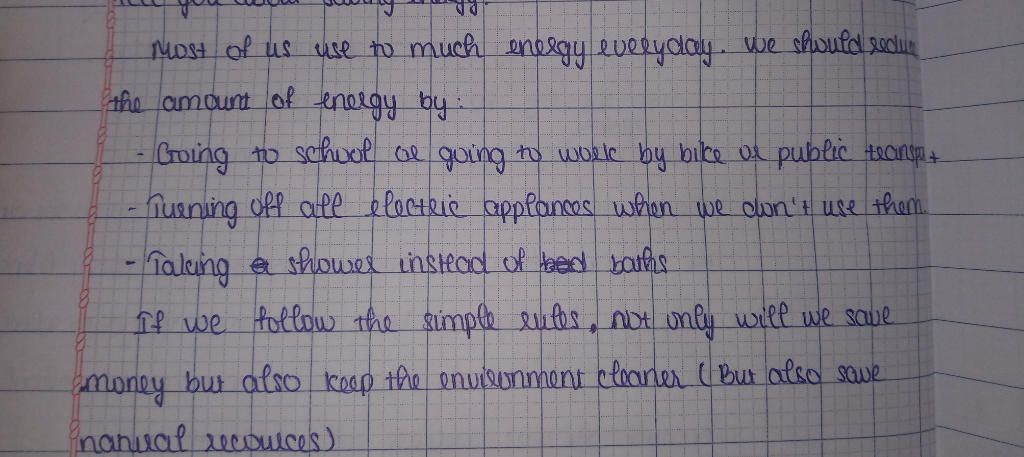 you about saving energy.
Most of us use to much energy everyday. We should reduce
the amount of energy by:
- Going to school or going to work by bike or public transpt
- Turning off all electric appliances when we don't use them
- Taking a shower instead of baths
If we follow the simple rules, not only will we save
money but also keep the environment cleaner (But also save
nanural recources)